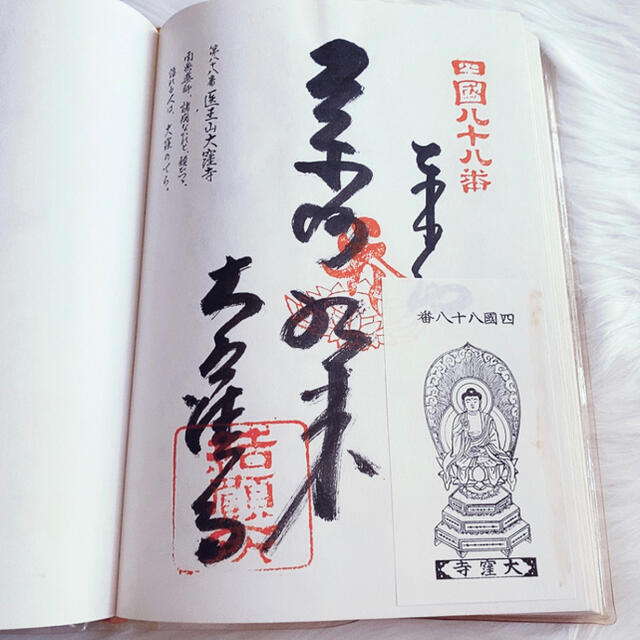 四國八十八番
奉
四國八十八番
大窪寺
薬師如来
大窪寺
第八十八番 医王山大窪寺
南無薬師、諸病なかれと、願ひつゝ、
詣れる人は、大窪のてら。